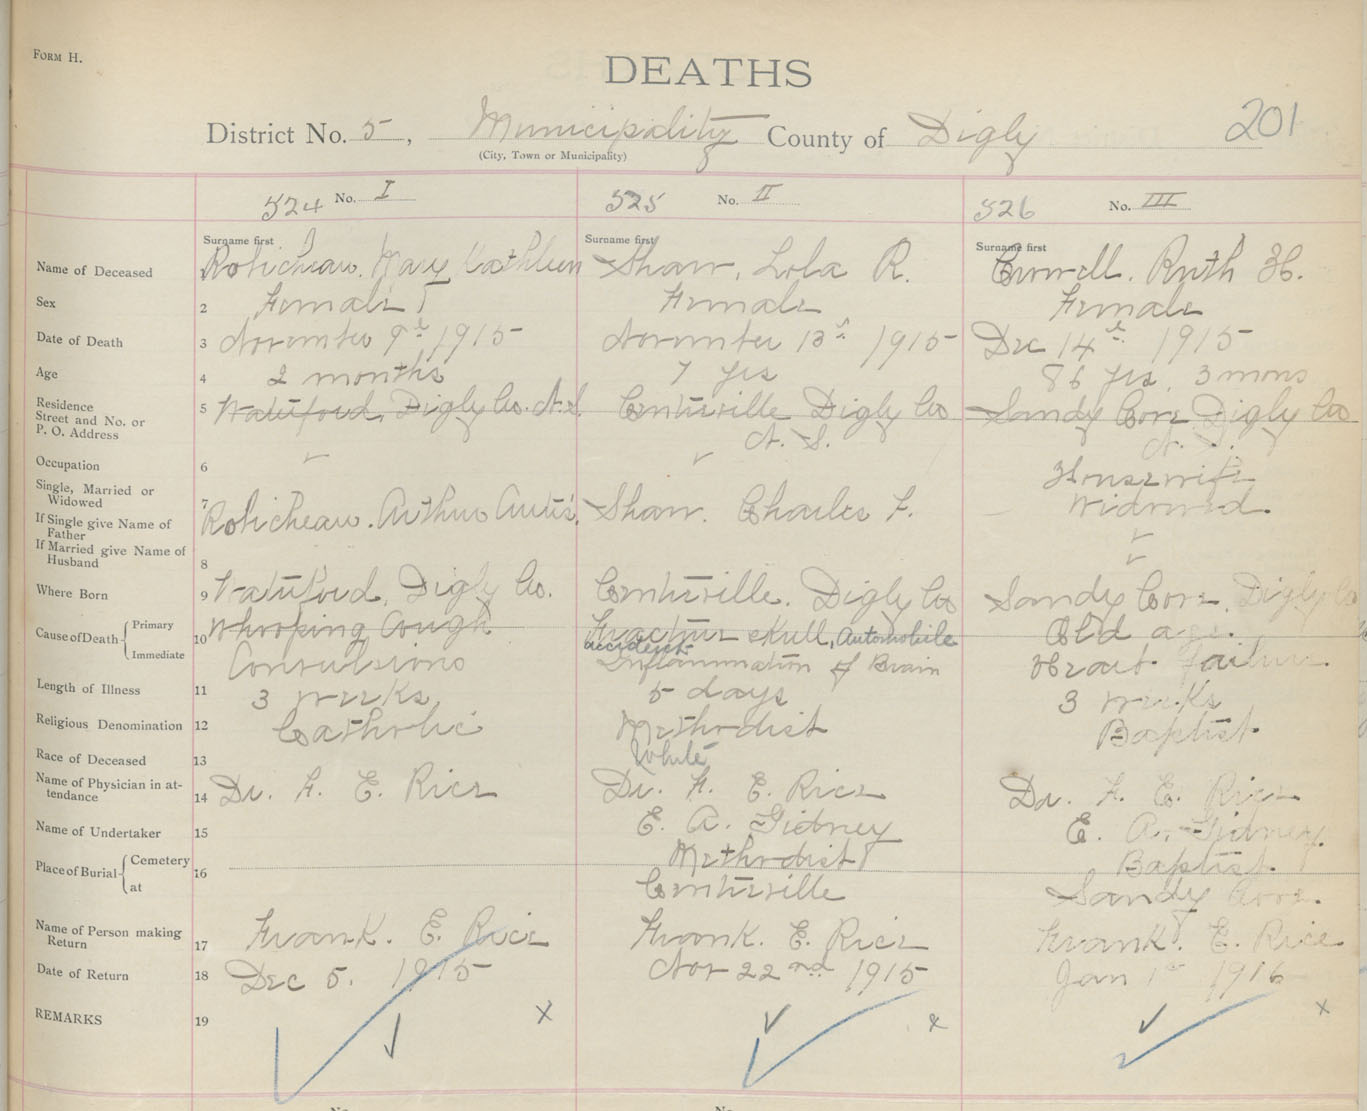 FORM H.
DEATHS
201
District No. 5, Municipality County of Digby
(City, Town or Municipality)
524 No. I 525 No. II 526 No. III
Surname first Surname first Surname first
Name of Deceased 1 Robicheau, Mary Kathleen Shaw, Lola R. Ruth H.
Sex 2 Female Female Female
Date of Death 3 November 9th 1915 November 13th 1915 Dec 14th 1915
Age 4 2 months 7 yrs 86 yrs, 3 mons
Residence
Street and No. or
P. O. Address
5 Waterford, Digby Co. N.S. Centerville Digby Co Sandy Cove Digby Co
N. S. N. S.
Occupation 6 Housewife
Single, Married or
Widowed
7 Widowed.
If Single give Name of
Father
Robicheau. Arthur Shaw. Charles F.
If Married give Name of
Husband
8
Where Born 9 Waterford, Digby Co. Centerville. Digby Co Sandy Cove, Digby Co
Cause of Death Primary 10 Whooping Cough Fracture skull, Automobile accident Old age.
Immediate Convulsions Inflammation of Brain Heart failure.
Length of Illness 11 3 weeks 5 days 3 weeks
Religious Denomination 12 Catholic Methodist Baptist
Race of Deceased 13 White
Name of Physician in at-
tendance
14 Dr. F. E. Rice Dr. F. E. Rice Dr. F. E. Rice
Name of Undertaker 15 E. A. Gidney E. A. Gidney.
Place of Burial Cemetery 16 Methodist Baptist.
at Centerville Sandy Cove.
Name of Person making
Return
17 Frank. E. Rice Frank. E. Rice Frank. E. Rice
Date of Return 18 Dec 5. 1915 Nov 22nd 1915 Jan 1st 1916
REMARKS 19 x x x
No. No.